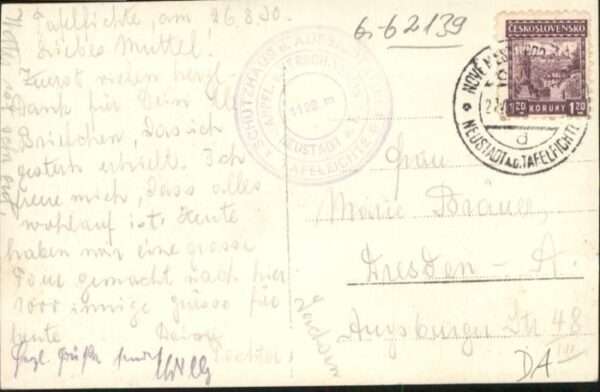 Tafelfichte, am 26.8.30.
Liebes Muttel!
Zuerst vielen herzl.
Dank für Dein lb.
Briefchen, das ich
gestern erhielt. Ich
freue mich, dass alles
wohlauf ist. Heute
haben wir eine grosse
Tour gemacht nach hier
1000 innige Grüsse für
heute
Tochter
Herzl. Grüße sendet Willy
6-62139
ČESKOSLOVENSKO
1.20 KORUNY 1.20
NEUSTADT A.D. TAFELFICHTE
a
SCHUTZHAUS
1122 m
NEUSTADT
TAFELFICHTE
Frau
Marie Bräuer,
Dresden - A.
Augsburger Str 48
III
Sachsen
DA